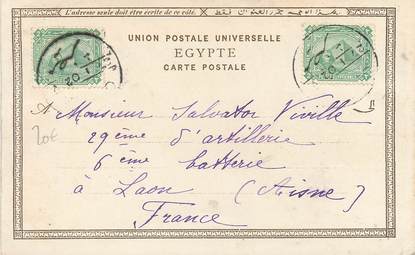 L'adresse seule doit être écrite de ce côté.
UNION POSTALE UNIVERSELLE
EGYPTE
CARTE POSTALE
A Monsieur Salvator Viville
29ème d'artillerie
20€
6ème batterie
à Laon (Aisne)
France